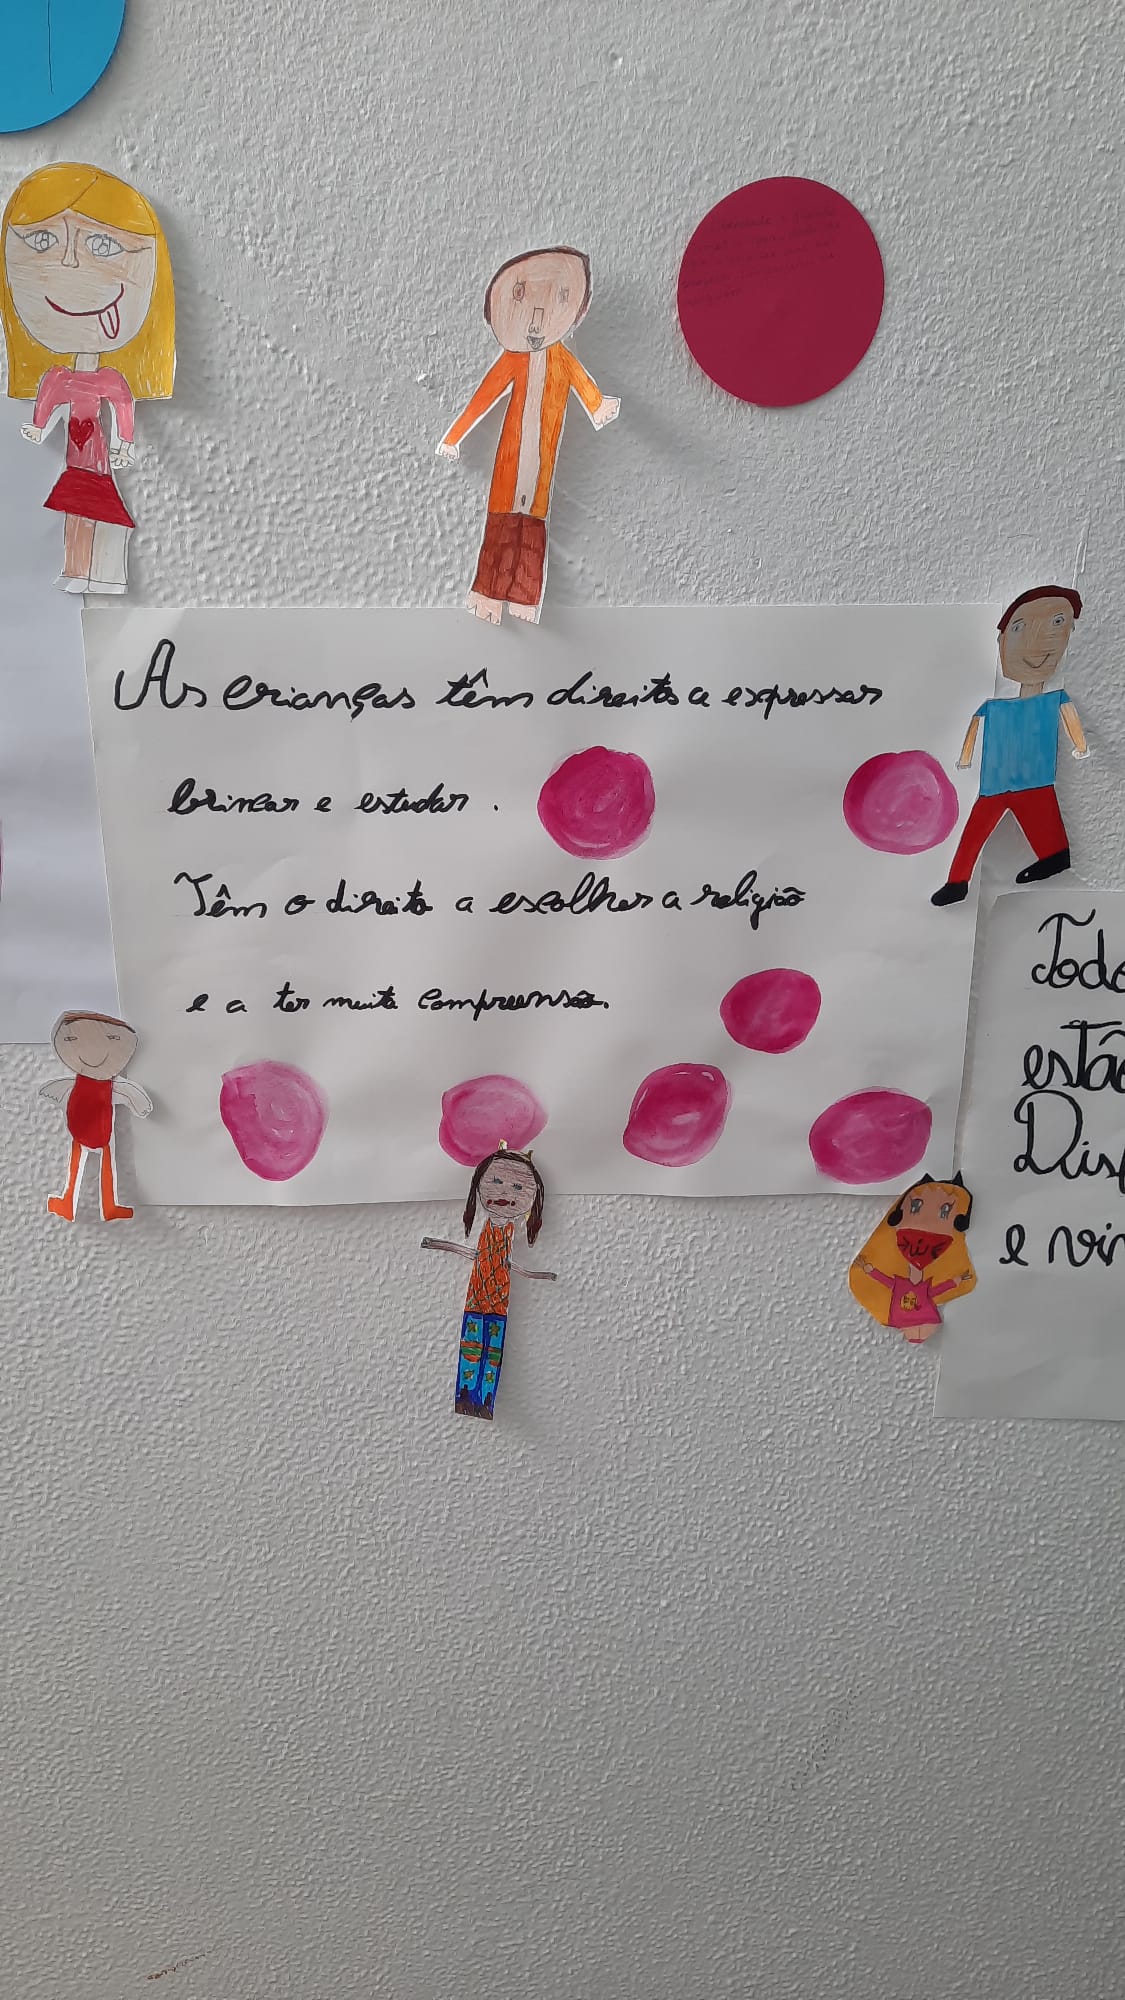 As crianças têm direito a expressar
brincar e estudar.
Têm o direito a escolher a religião
e a ter muita compreensão.
Tod
estã
Dis
e vir